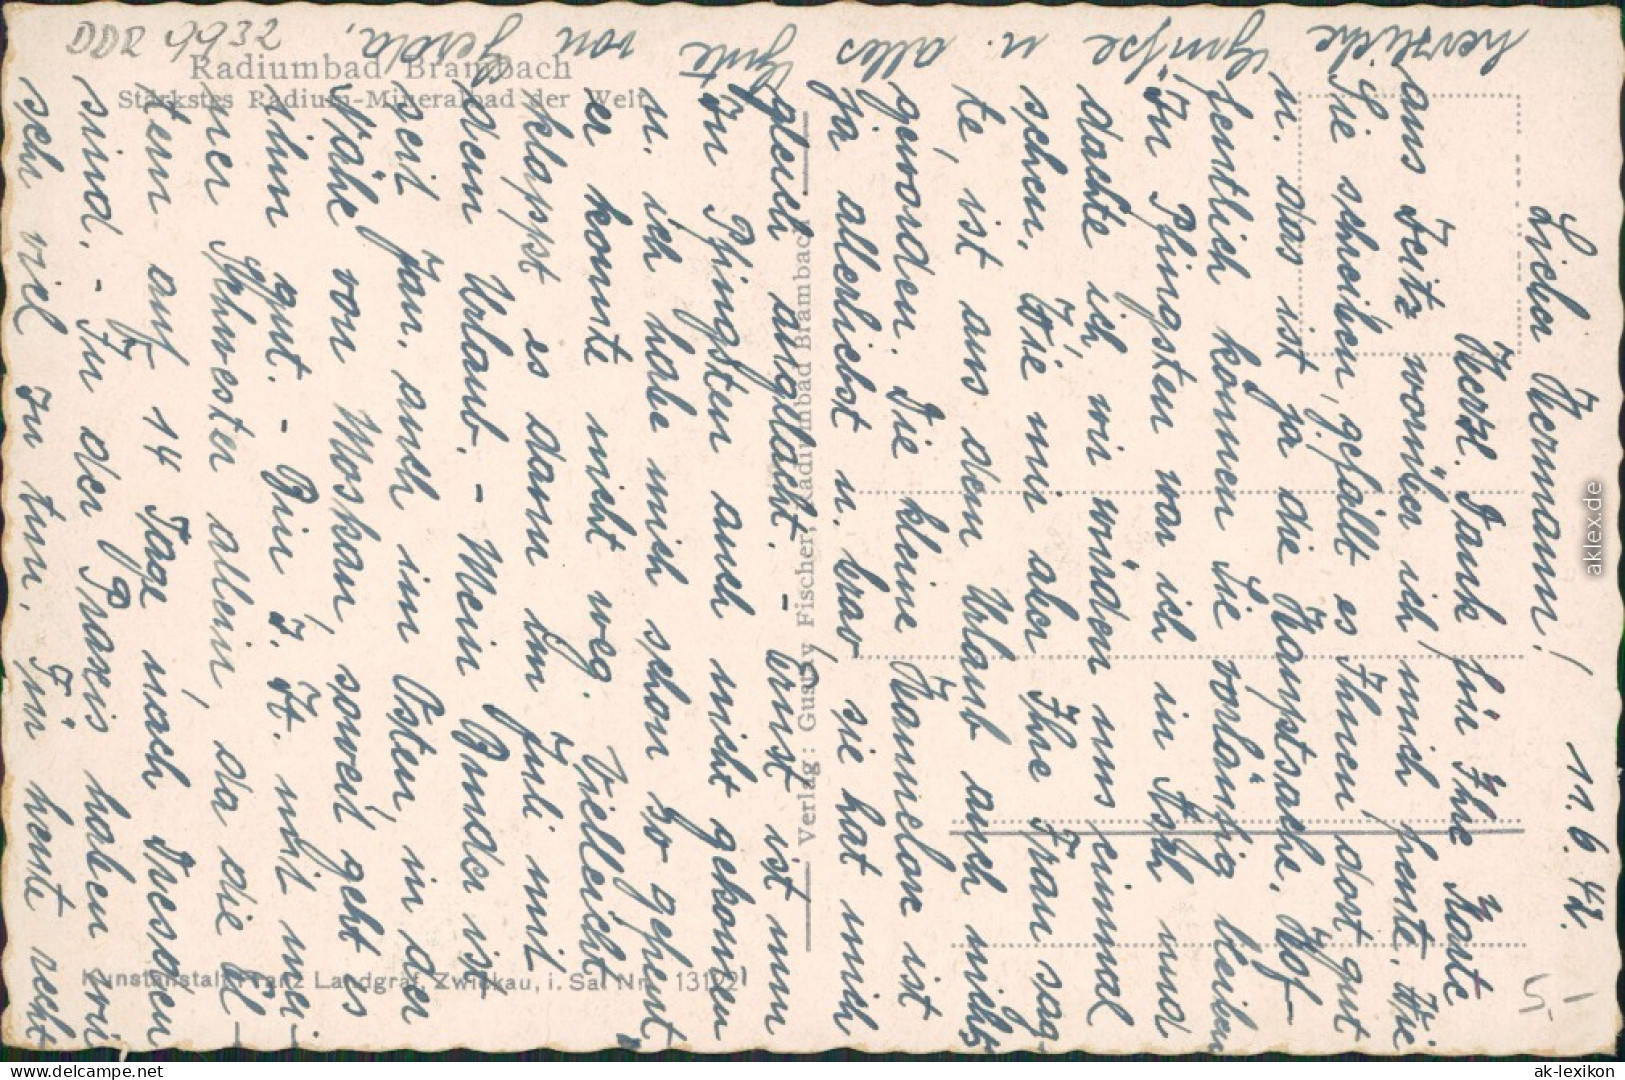 Lieber Hermann!  11.6.42.
Herzl. Dank für Ihre Karte
aus Zeitz worüber ich mich freute. Wie
Sie schreiben, gefällt es Ihnen dort gut
u. das ist ja die Hauptsache. Hof-
fentlich können Sie vorläufig bleiben
Zu Pfingsten war ich in Asch und
dachte ich, wir würden uns einmal
sehen. Wie mir aber Ihre Frau sag-
te, ist aus dem Urlaub auch nichts
geworden. Die kleine Hannelore ist
ja allerliebst u. brav, sie hat mich
gleich anglacht. - Ernst ist nun
zu Pfingsten auch nicht gekommen
u. ich habe mich schon so gefreut
er konnte nicht weg. Vielleicht
klappt es dann im Juli mit
dem Urlaub. - Mein Bruder ist
seit Jan. auch im Osten, in der
Nähe von Moskau, soweit geht es
ihm gut. - Bin z. Zt. mit mei-
ner Schwester allein, da die El-
tern auf 14 Tage nach Dresden
sind. - In der Praxis haben wir
sehr viel zu tun. Für heute recht
herzliche Grüße u. alles Gute von Gerda.
DDZ 9932
Radiumbad Brambach
Stärkstes Radium-Mineralbad der Welt
Verlag: Gustav Fischer, Radiumbad Brambach
Kunstanstalt Franz Landgraf, Zwickau, i. Sa. Nr. 13122
5,-
aklex.de
www.delcampe.net
ak-lexikon